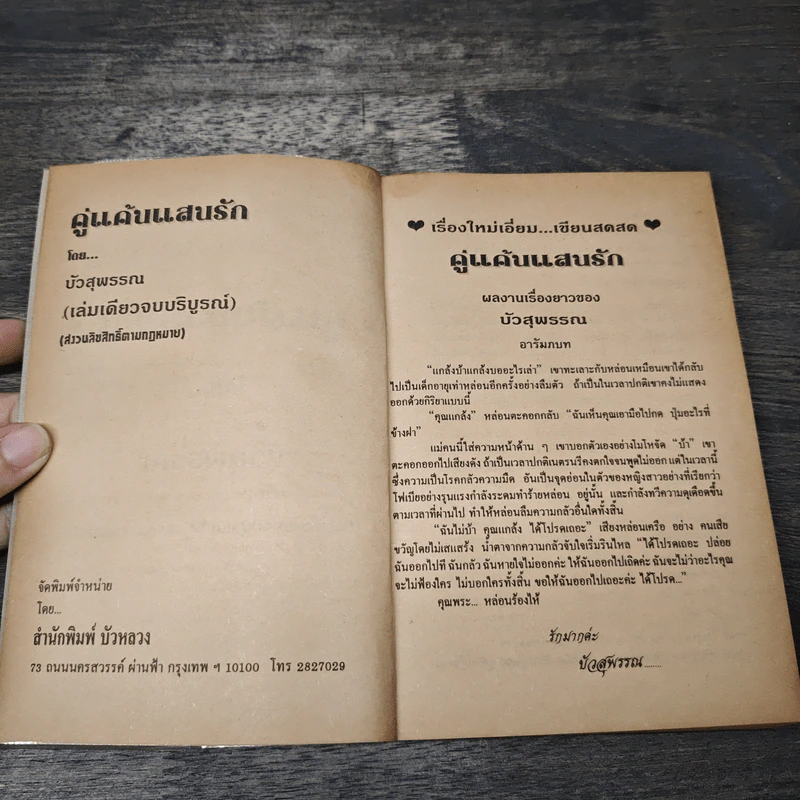 คู่แค้นแสนรัก
โดย...
บัวสุพรรณ
(เล่มเดียวจบบริบูรณ์)
(สงวนลิขสิทธิ์ตามกฎหมาย)
จัดพิมพ์จำหน่าย
โดย...
สำนักพิมพ์ บัวหลวง
73 ถนนนครสวรรค์ ผ่านฟ้า กรุงเทพ ฯ 10100 โทร 2827029
❤ เรื่องใหม่เอี่ยม...เขียนสดสด ❤
คู่แค้นแสนรัก
ผลงานเรื่องยาวของ
บัวสุพรรณ
อารัมภบท
“แกล้งบ้าแกล้งบออะไรเล่า” เขาทะเลาะกับหล่อนเหมือนเขาได้กลับ
ไปเป็นเด็กอายุเท่าหล่อนอีกครั้งอย่างลืมตัว ถ้าเป็นในเวลาปกติเขาคงไม่แสดง
ออกด้วยกิริยาแบบนี้
“คุณแกล้ง” หล่อนตะคอกกลับ “ฉันเห็นคุณเอามือไปกด ปุ่มอะไรที่
ข้างฝา”
แม่คนนี้ใส่ความหน้าด้าน ๆ เขาบอกตัวเองอย่างโมโหจัด “บ้า” เขา
ตะคอกออกไปเสียงดัง ถ้าเป็นเวลาปกติเนตรนรีคงตกใจจนพูดไม่ออก แต่ในเวลานี้
ซึ่งความเป็นโรคกลัวความมืด อันเป็นจุดอ่อนในตัวของหญิงสาวอย่างที่เรียกว่า
โฟเบียอย่างรุนแรงกำลังระดมทำร้ายหล่อน อยู่นั้น และกำลังทวีความดุเดือดขึ้น
ตามเวลาที่ผ่านไป ทำให้หล่อนลืมความกลัวอื่นใดทั้งสิ้น
“ฉันไม่บ้า คุณแกล้ง ได้โปรดเถอะ” เสียงหล่อนเครือ อย่าง คนเสีย
ขวัญโดยไม่เสแสร้ง น้ำตาจากความกลัวจับใจเริ่มรินไหล “ได้โปรดเถอะ ปล่อย
ฉันออกไปที ฉันกลัว ฉันหายใจไม่ออกค่ะ ให้ฉันออกไปเถิดค่ะ ฉันจะไม่ว่าอะไรคุณ
จะไม่ฟ้องใคร ไม่บอกใครทั้งสิ้น ขอให้ฉันออกไปเถอะค่ะ ได้โปรด...”
คุณพระ... หล่อนร้องไห้
รักมากค่ะ
บัวสุพรรณ........